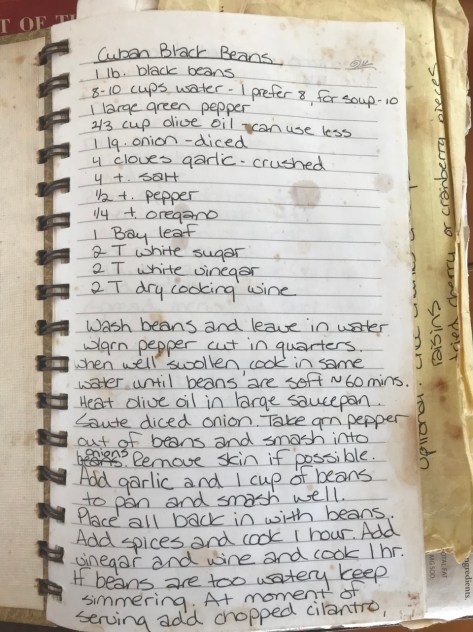 T OF T
Cuban Black Beans
1 lb. black beans
8-10 cups water - I prefer 8, for soup -10
1 large green pepper
2/3 cup olive oil - can use less
1 lg. onion - diced
4 cloves garlic - crushed
4 t. salt
1/2 t. pepper
1/4 t. oregano
1 Bay leaf
2 T white sugar
2 T white vinegar
2 T dry cooking wine
Wash beans and leave in water
w/grn pepper cut in quarters.
When well swollen, cook in same
water until beans are soft ~ 60 mins.
Heat olive oil in large saucepan.
Saute diced onion. Take grn pepper
out of beans and smash into
onions. Remove skin if possible.
Add garlic and 1 cup of beans
to pan and smash well.
Place all back in with beans.
Add spices and cook 1 hour. Add
vinegar and wine and cook 1 hr.
If beans are too watery keep
simmering. At moment of
serving add chopped cilantro.
Optional:
raisins
dried cherry or cranberry pieces